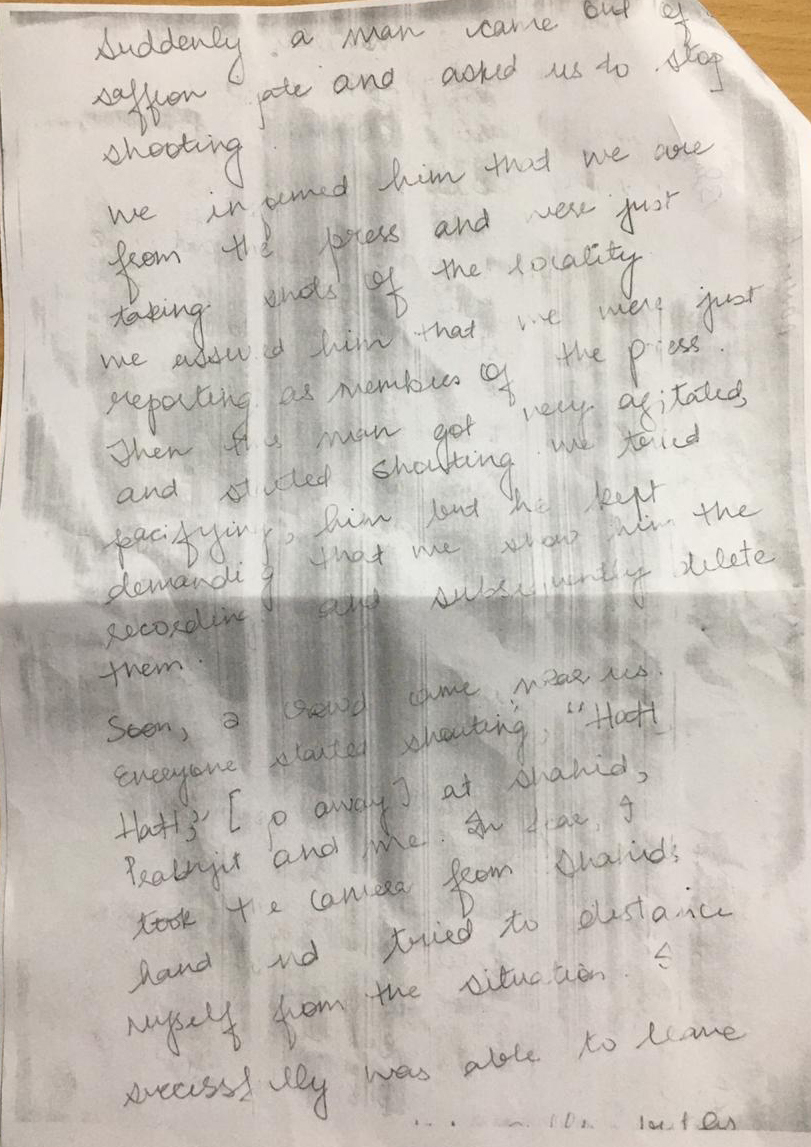 Suddenly a man came out of
saffron gate and asked us to stop
shooting.
We informed him that we are
from the press and were just
taking shots of the locality
we assured him that we were just
reporting as members of the press.
Then this man got very agitated,
and started shouting we tried
pacifying, him but he kept
demanding that we show him the
recording and subsequently delete
them.
Soon, a crowd came near us.
Everyone started shouting, "Hatt
Hatt," [go away] at Shahid,
Prabhjit and me. In fear, I
took the camera from Shahid's
hand and tried to distance
myself from the situation. I
successfully was able to leave